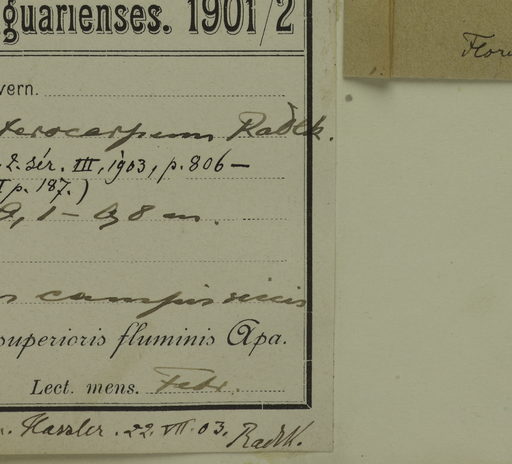 guarienses. 1901/2
Flori
vern.
terocarpum Radlk.
2. sér. III, 1903, p. 806 —
I p. 187.)
0,1 — 0,8 m.
campis siccis
superioris fluminis Apa.
Lect. mens. Febr.
Hassler. 22. VII. 03. Radlk.